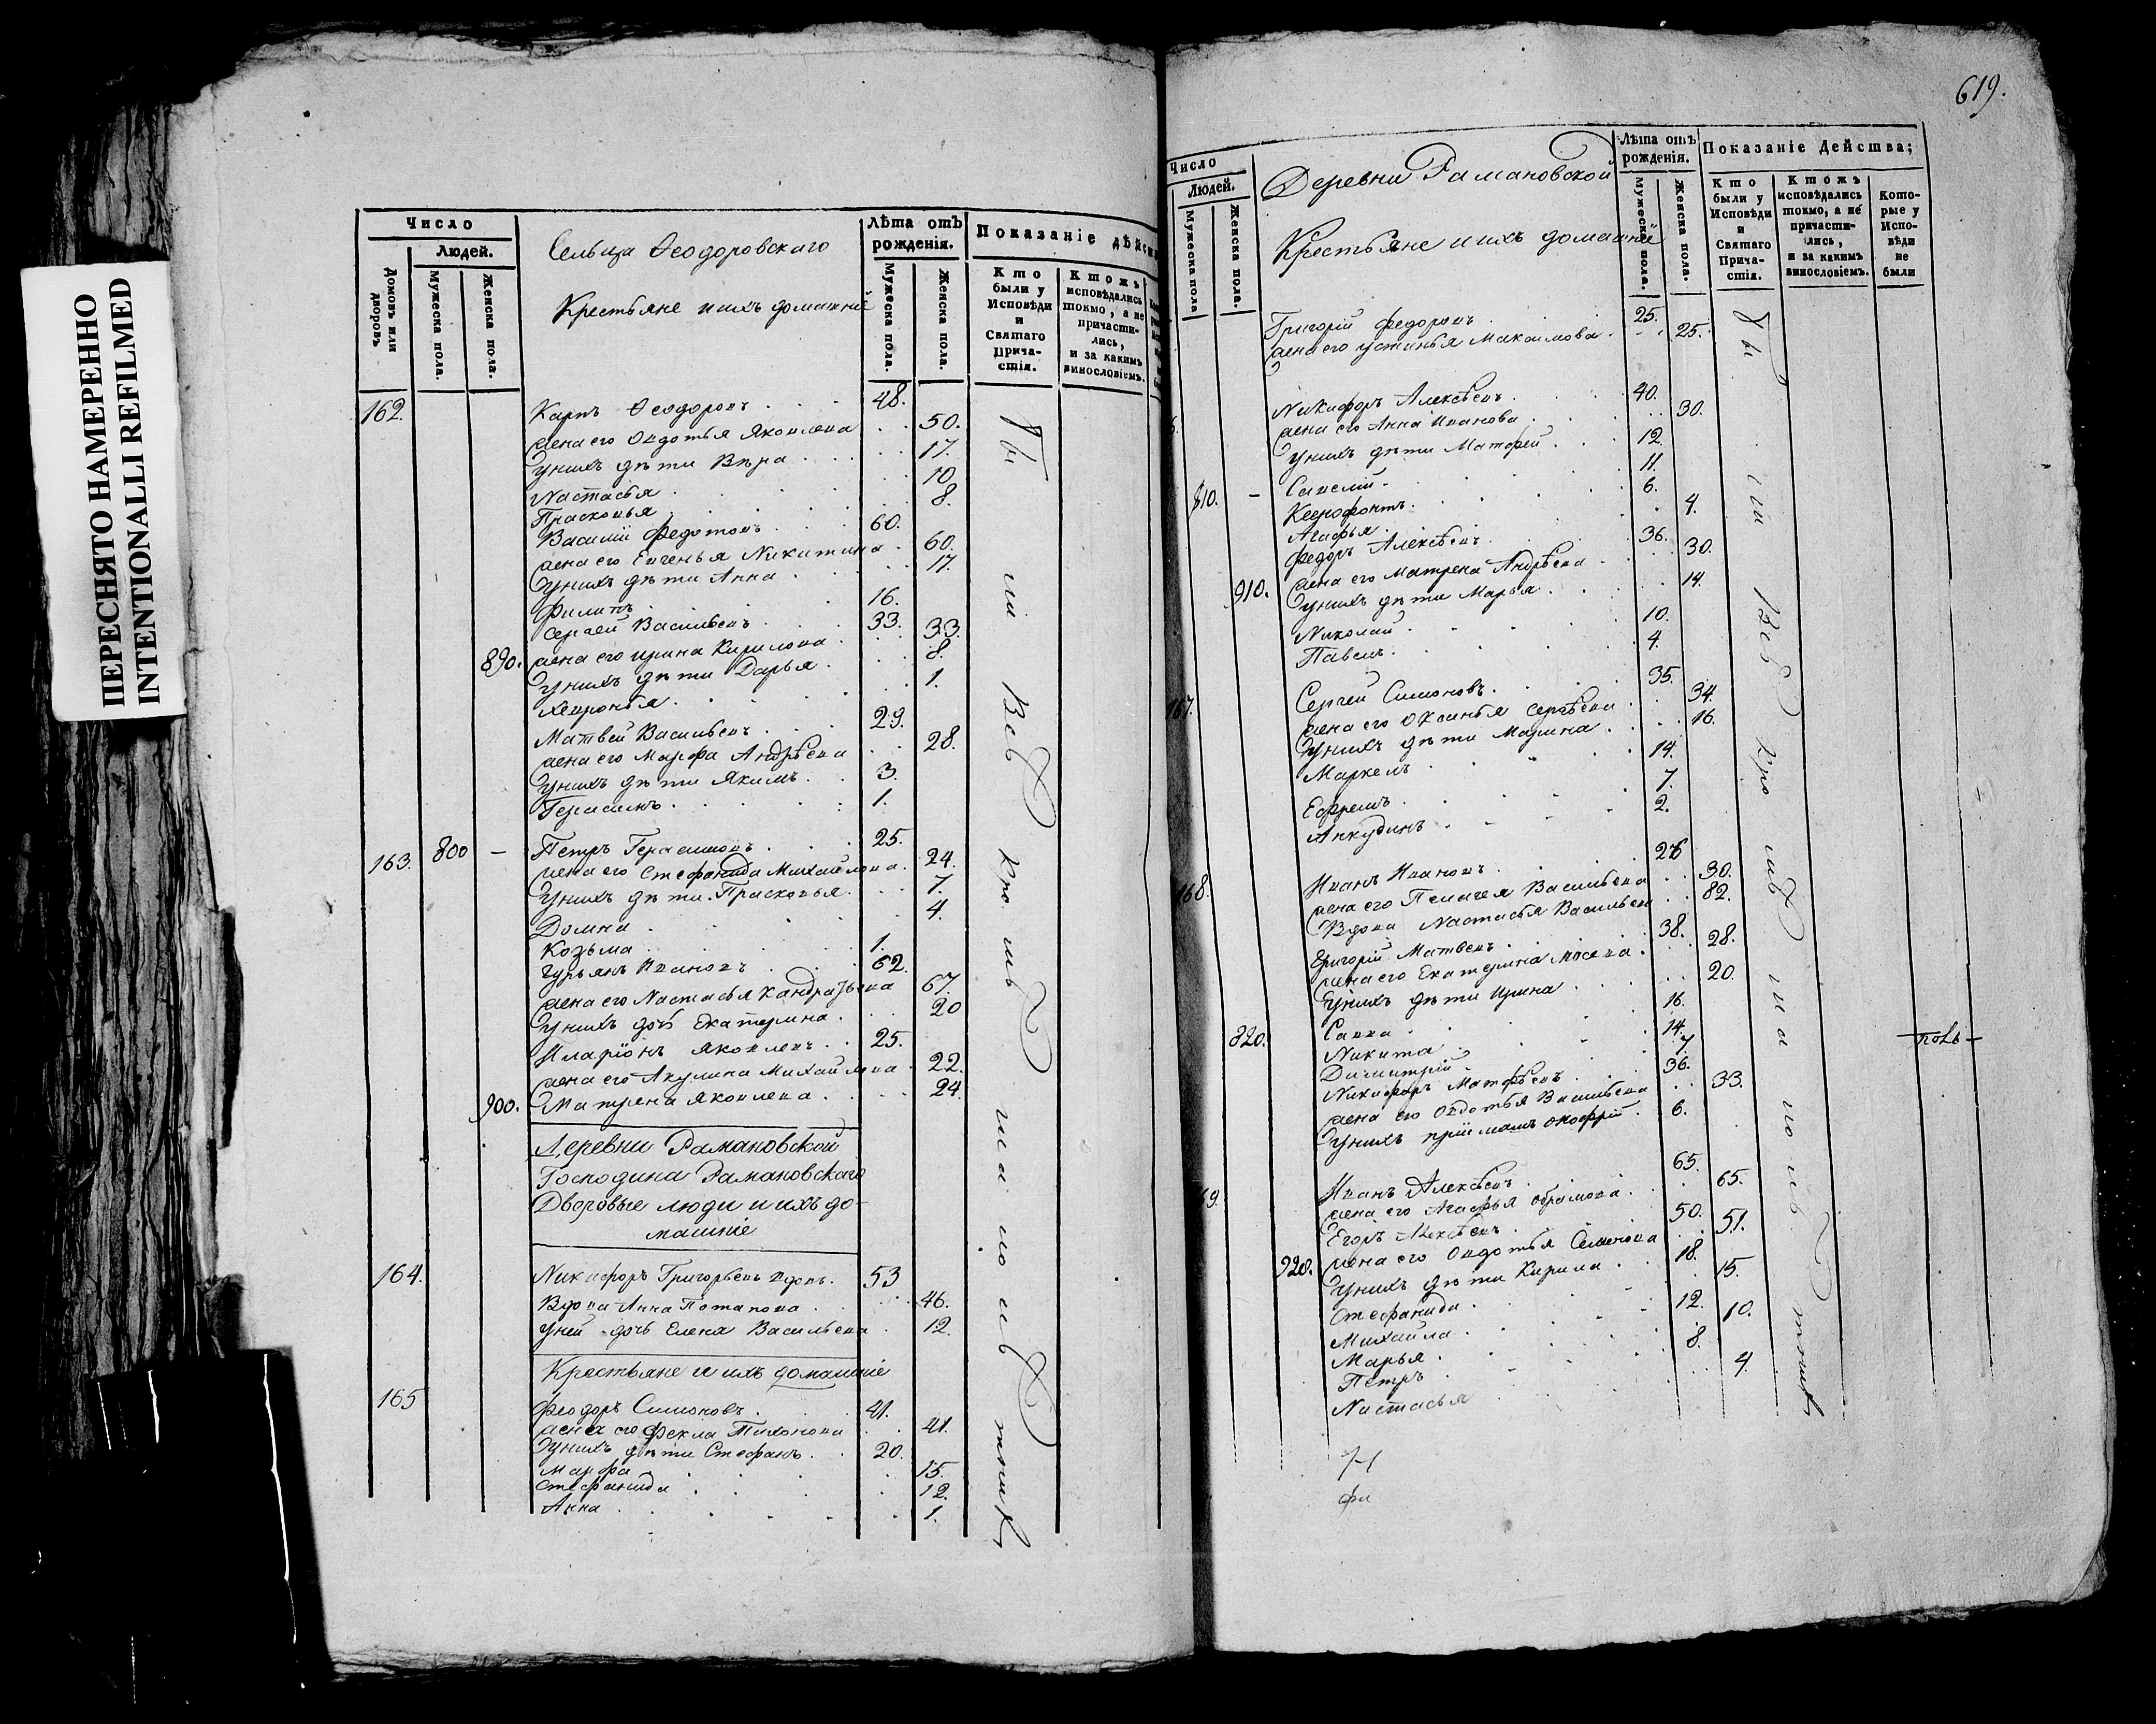 ПЕРЕСНЯТО НАМЕРЕННО
INTENTIONALLI REFILMED
Число
Людей.
Домовъ или дворовъ
Мужеска пола.
Женска пола.
Сельца Ѳеодоровскаго
Крестьяне и ихъ домашніе
Лѣта отъ рожденія.
Мужеска пола.
Женска пола.
Показаніе дѣйс
Кто были у Исповѣди и Святаго Прича-стія.
Ктожъ исповѣдались токмо, а не причасти-лись, и за какимъ винословіемъ.
162. Карпъ Ѳеодоровъ 48.
жена его Овдотья Яковлева 50.
у нихъ дѣти Вѣра 17.
Настасья 10.
Прасковья 8.
Василій Федотовъ 60.
жена его Евгенья Никитина 60.
у нихъ дѣти Анна 17.
Филипъ 16.
Сергей Васильевъ 33.
890. жена его Ирина Кирилова 33.
у нихъ дѣти Дарья 8.
Хевронья 1.
Матвей Васильевъ 29.
жена его Марфа Андрѣева 28.
у нихъ дѣти Якимъ 3.
Герасимъ 1.
163. 800 — Петръ Герасимовъ 25.
жена его Стефанида Михайлова 24.
у нихъ дѣти Прасковья 7.
Домна 4.
Козьма 1.
Гурьянъ Ивановъ 62.
жена его Настасья Кандратьева 67.
у нихъ дочь Екатерина 20
Иларіонъ Яковлевъ 25.
жена его Акулина Михайлова 22.
900. Матрена Яковлева 24.
Деревни Рамановской
Господина Рамановскаго
Дворовые люди и ихъ до-
машніе
164. Никифоръ Григорьевъ вдовъ. 53
Вдова Анна Потапова 46.
у ней дочь Елена Васильева 12.
Крестьяне и ихъ домашніе
165 Феодоръ Симоновъ 41.
жена его Фекла Тихонова 41.
у нихъ дѣти Стефанъ 20.
Марфа 15.
Стефанида 12.
Анна 1.
619.
Число
Людей.
Мужеска пола
Женска пола.
Деревни Рамановской
Крестьяне и ихъ домашніе
Лѣта отъ рожденія.
Мужеска пола.
Женска пола.
Показаніе Действа;
Кто были у Исповѣди и Святаго Прича-стія.
Ктожъ исповѣдались токмо, а не причасти-лись, и за какимъ винословіемъ.
Кото-рые у Испо-вѣди не были
Григорій Федоровъ 25.
жена его Устинья Максимова 25.
Никифоръ Алексѣевъ 40.
жена его Анна Иванова 30.
у нихъ дѣти Матфей 12.
810. — Савелій 11.
Ксенофонтъ 6.
Агафья 4.
Федоръ Алексѣевъ 36.
910. жена его Матрена Андрѣева 30.
у нихъ дѣти Марья 14.
Николай 10.
Павелъ 4.
167. Сергей Симоновъ 35.
жена его Оксинья Сергѣева 34.
у нихъ дѣти Марина 16.
Маркелъ 14.
Ефремъ 7.
Анкудинъ 2.
168. Иванъ Ивановъ 26
жена его Пелагея Васильева 30.
Вдова Настасья Васильева 82.
Григорій Матвевъ 38.
жена его Екатерина Мосева 28.
у нихъ дѣти Ирина 20.
820. Савва 16.
Никита 14.
Димитрій 7.
Никифоръ Матфѣевъ 36.
жена его Овдотья Васильева 33.
у нихъ пріимышъ Онофрій 6.
69. Иванъ Алексѣевъ 65.
жена его Агафья Обрамова 65.
Егоръ Алексѣевъ 50.
920. жена его Овдотья Семенова 51.
у нихъ дѣти Кирила 18.
Стефанида 15.
Михайла 12.
Марья 10.
Петръ 8.
Настасья 4.